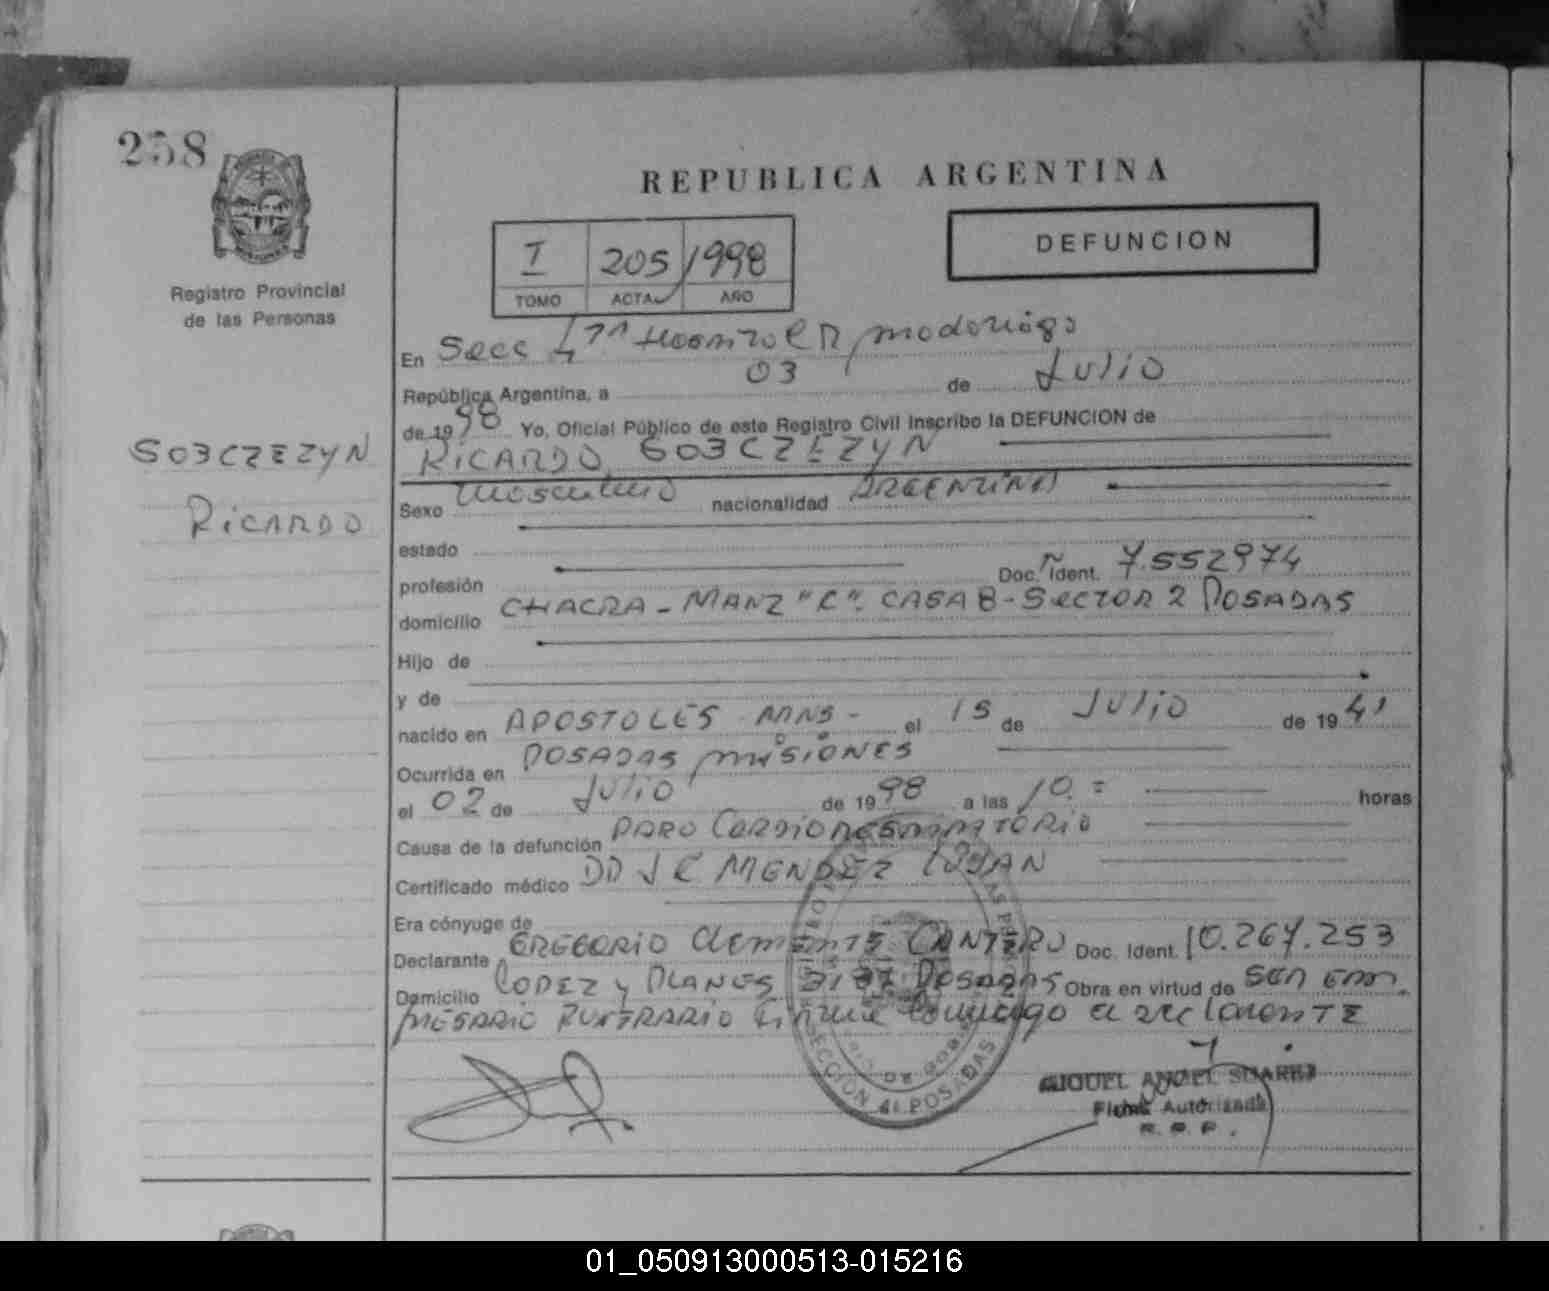 258
REPUBLICA ARGENTINA
I 205 1998
TOMO ACTA AÑO
DEFUNCION
Registro Provincial
de las Personas
En Secc 4ª Hospital R Madariaga
República Argentina, a 03 de Julio
de 1998 Yo, Oficial Público de este Registro Civil Inscribo la DEFUNCION de
SOBCZEZYN
RICARDO
RICARDO SOBCZEZYN
Sexo masculino nacionalidad ARGENTINA
estado
profesión Doc. Ident. 7.552974
domicilio CHACRA - MANZ "C". CASA 8 - SECTOR 2 POSADAS
Hijo de
y de
nacido en APOSTOLES - MNS - el 15 de JULIO de 1941
Ocurrida en POSADAS MISIONES
el 02 de JULIO de 1998 a las 10.= horas
Causa de la defunción PARO CARDIORESPIRATORIO
Certificado médico DD J C MENDEZ
Era cónyuge de
Declarante GREGORIO Clemente CANTERO Doc. Ident. 10.267.253
Domicilio LOPEZ y PLANES POSADAS Obra en virtud de SER EM
PRESARIO FUNERARIO firma conmigo el declarante
SECCIÓN 4ª POSADAS
MIGUEL ANGEL SUAREZ
Firma Autorizada
R. P. P.
01_050913000513-015216